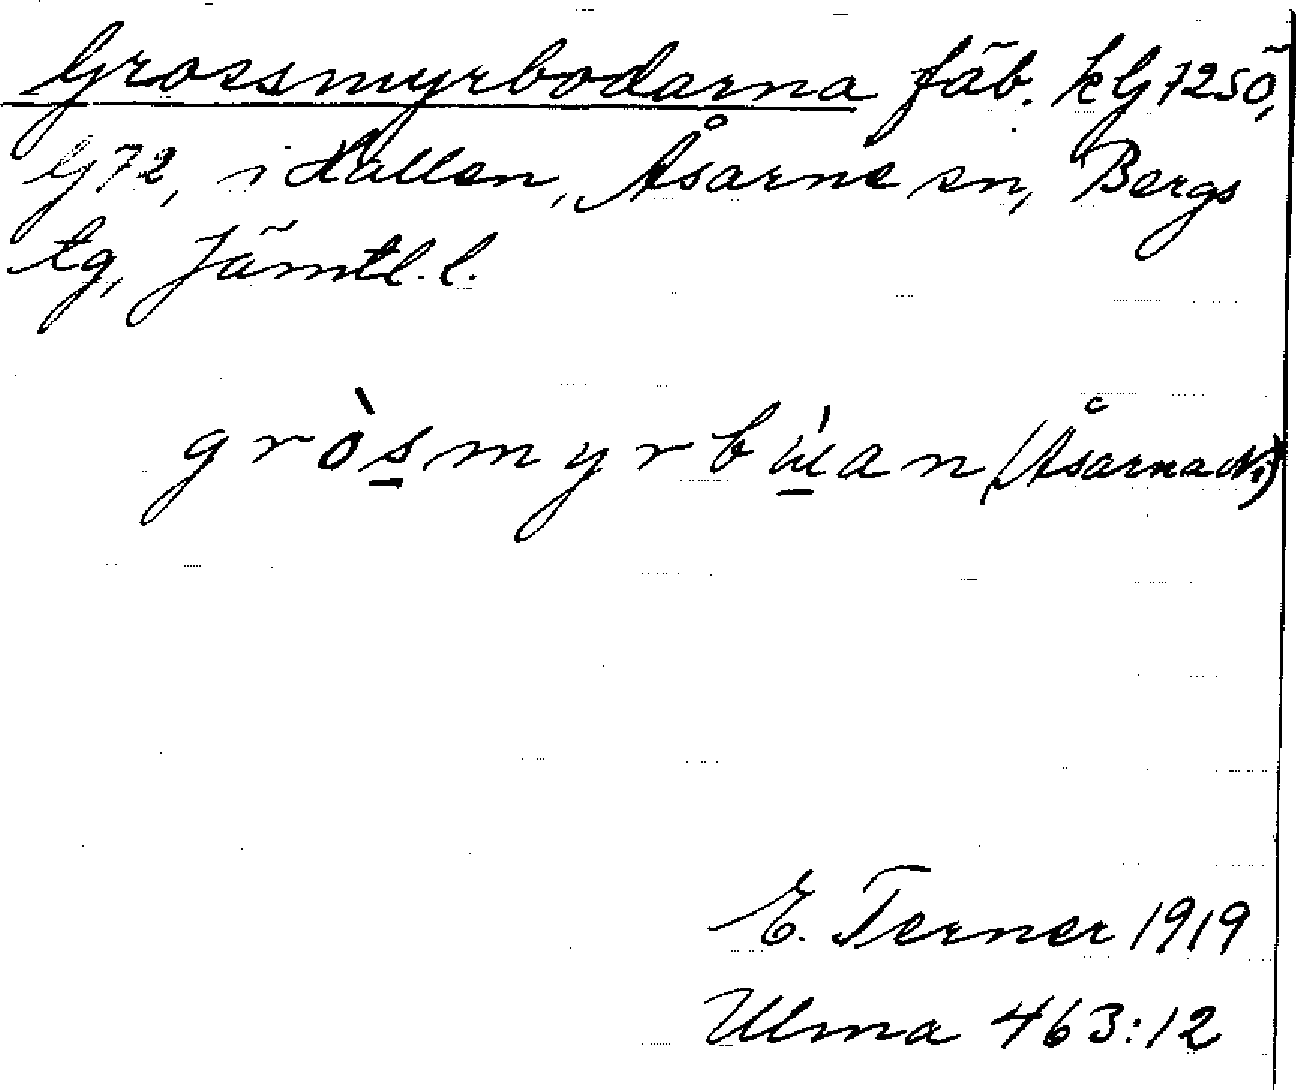 Grossmyrbodarna fäb. kG72SÖ,
G72, i Hallen, Åsarne sn, Bergs
tg, Jämtl. l.
gròsmyrbɯ́an (Åsarna N.)
E. Terner 1919
Ulma 463:12